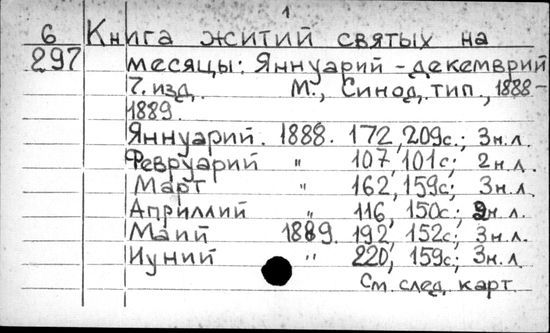 1
6 Книга житий святых на
297 месяцы: Яннуарий - декемврий
7. изд. М., Синод. тип., 1888-
1889.
Яннуарий. 1888. 172, 209с.; 3н.л.
Февруарий " 107, 101с; 2н.л.
Март " 162, 159с; 3н.л.
Априллий " 116, 150с.; 2н.л.
Маий 1889. 192, 152с; 3н.л.
Иуний " 220, 159с; 3н.л.
См. след. карт.